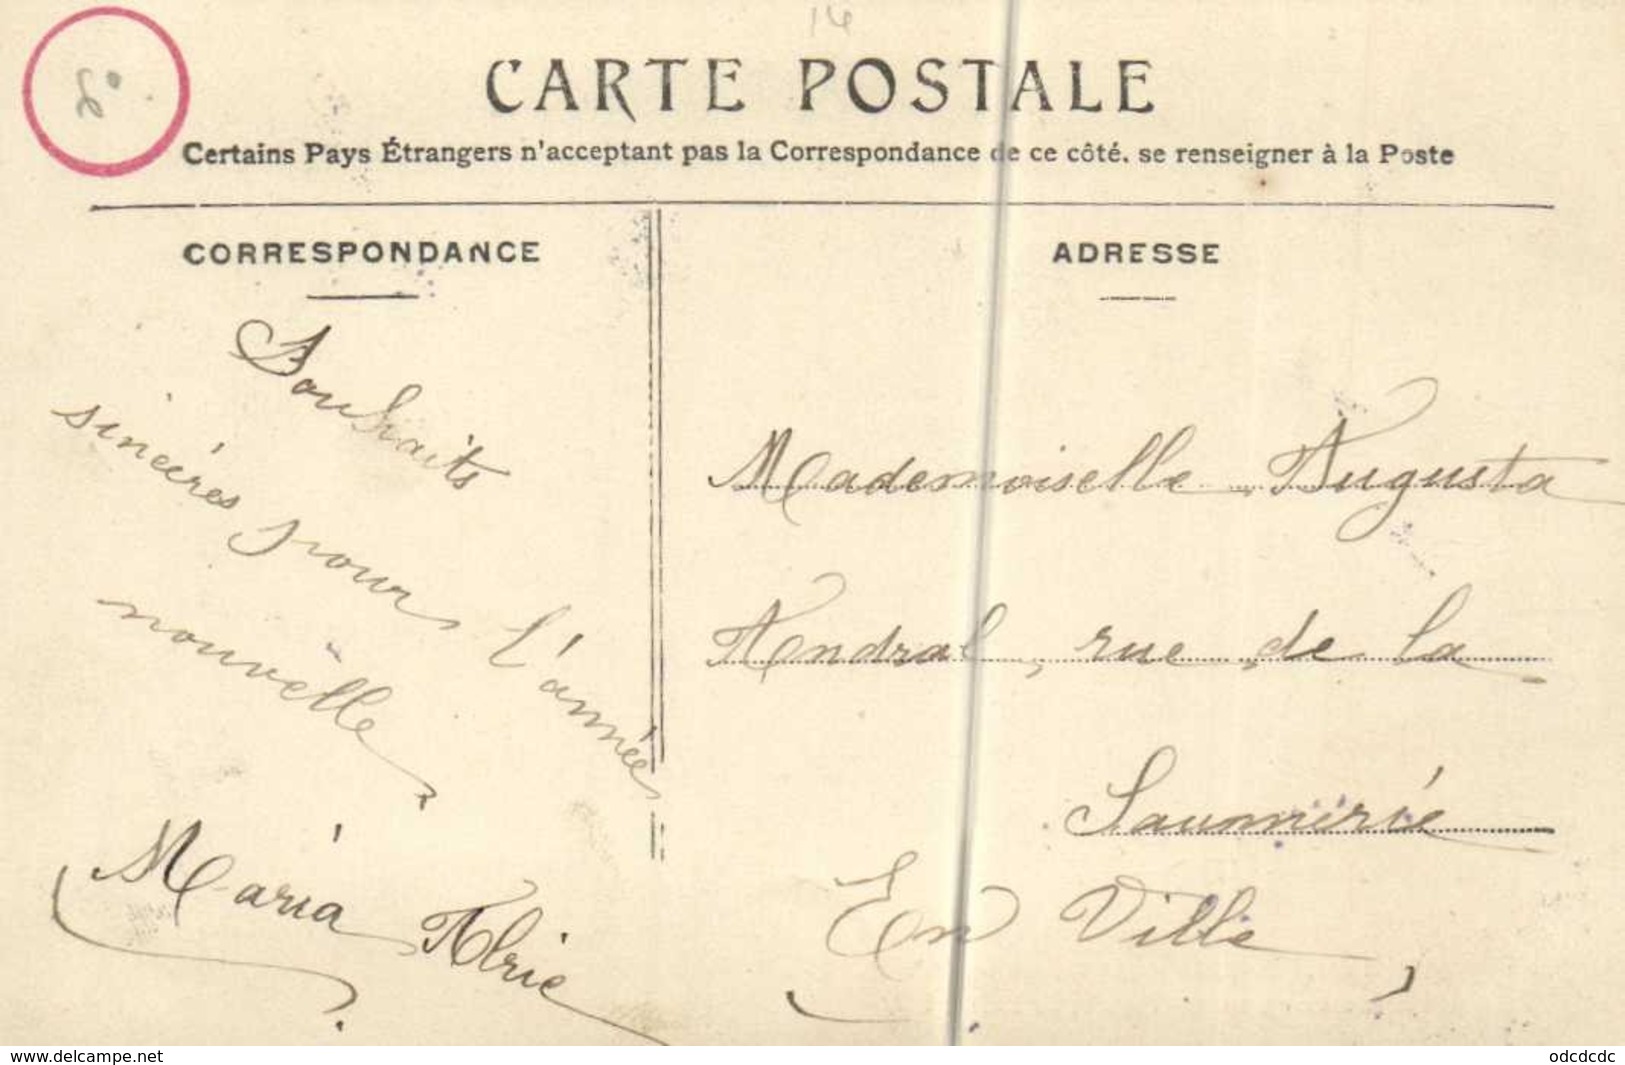 14
CARTE POSTALE
Certains Pays Étrangers n'acceptant pas la Correspondance de ce côté. se renseigner à la Poste
CORRESPONDANCE
Souhaits
sincères pour l'année
nouvelle
Maria Abrie
ADRESSE
Mademoiselle Augusta
Andral, rue de la
Saunerie
En Ville
www.delcampe.net
odcdcdc